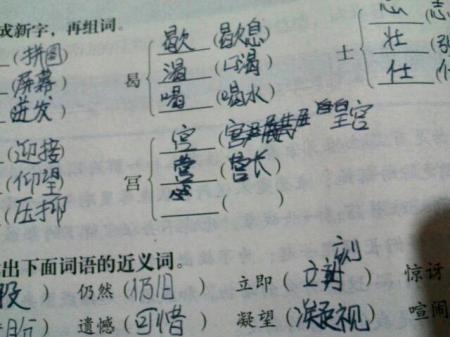 成新字，再组词。
(拼图) 歇 (歇息) 志
(屏幕) 曷 渴 (口渴) 士 壮
(迸发) 喝 (喝水) 仕
(迎接) 宫 (宫 皇宫
(仰望) 営 (营长)
(压抑) ( )
出下面词语的近义词。
仍然 (仍旧) 立即 (立刻 惊讶
遗憾 (可惜) 凝望 (凝视) 喧闹